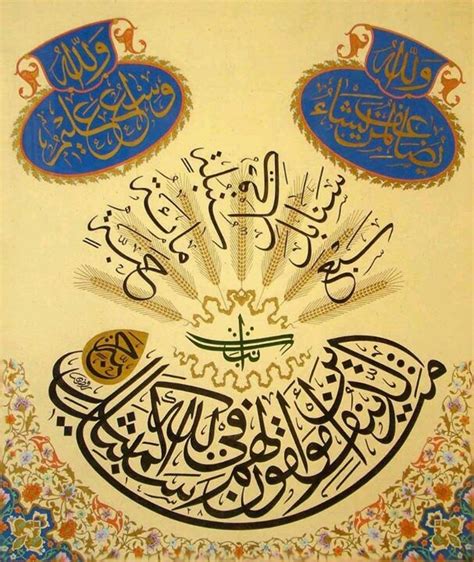 مثل الذين ينفقون أموالهم في سبيل الله كمثل
حبة
أنبتت
سبع سنابل في كل سنبلة مائة حبة
والله
يضاعف لمن يشاء
والله
واسع عليم